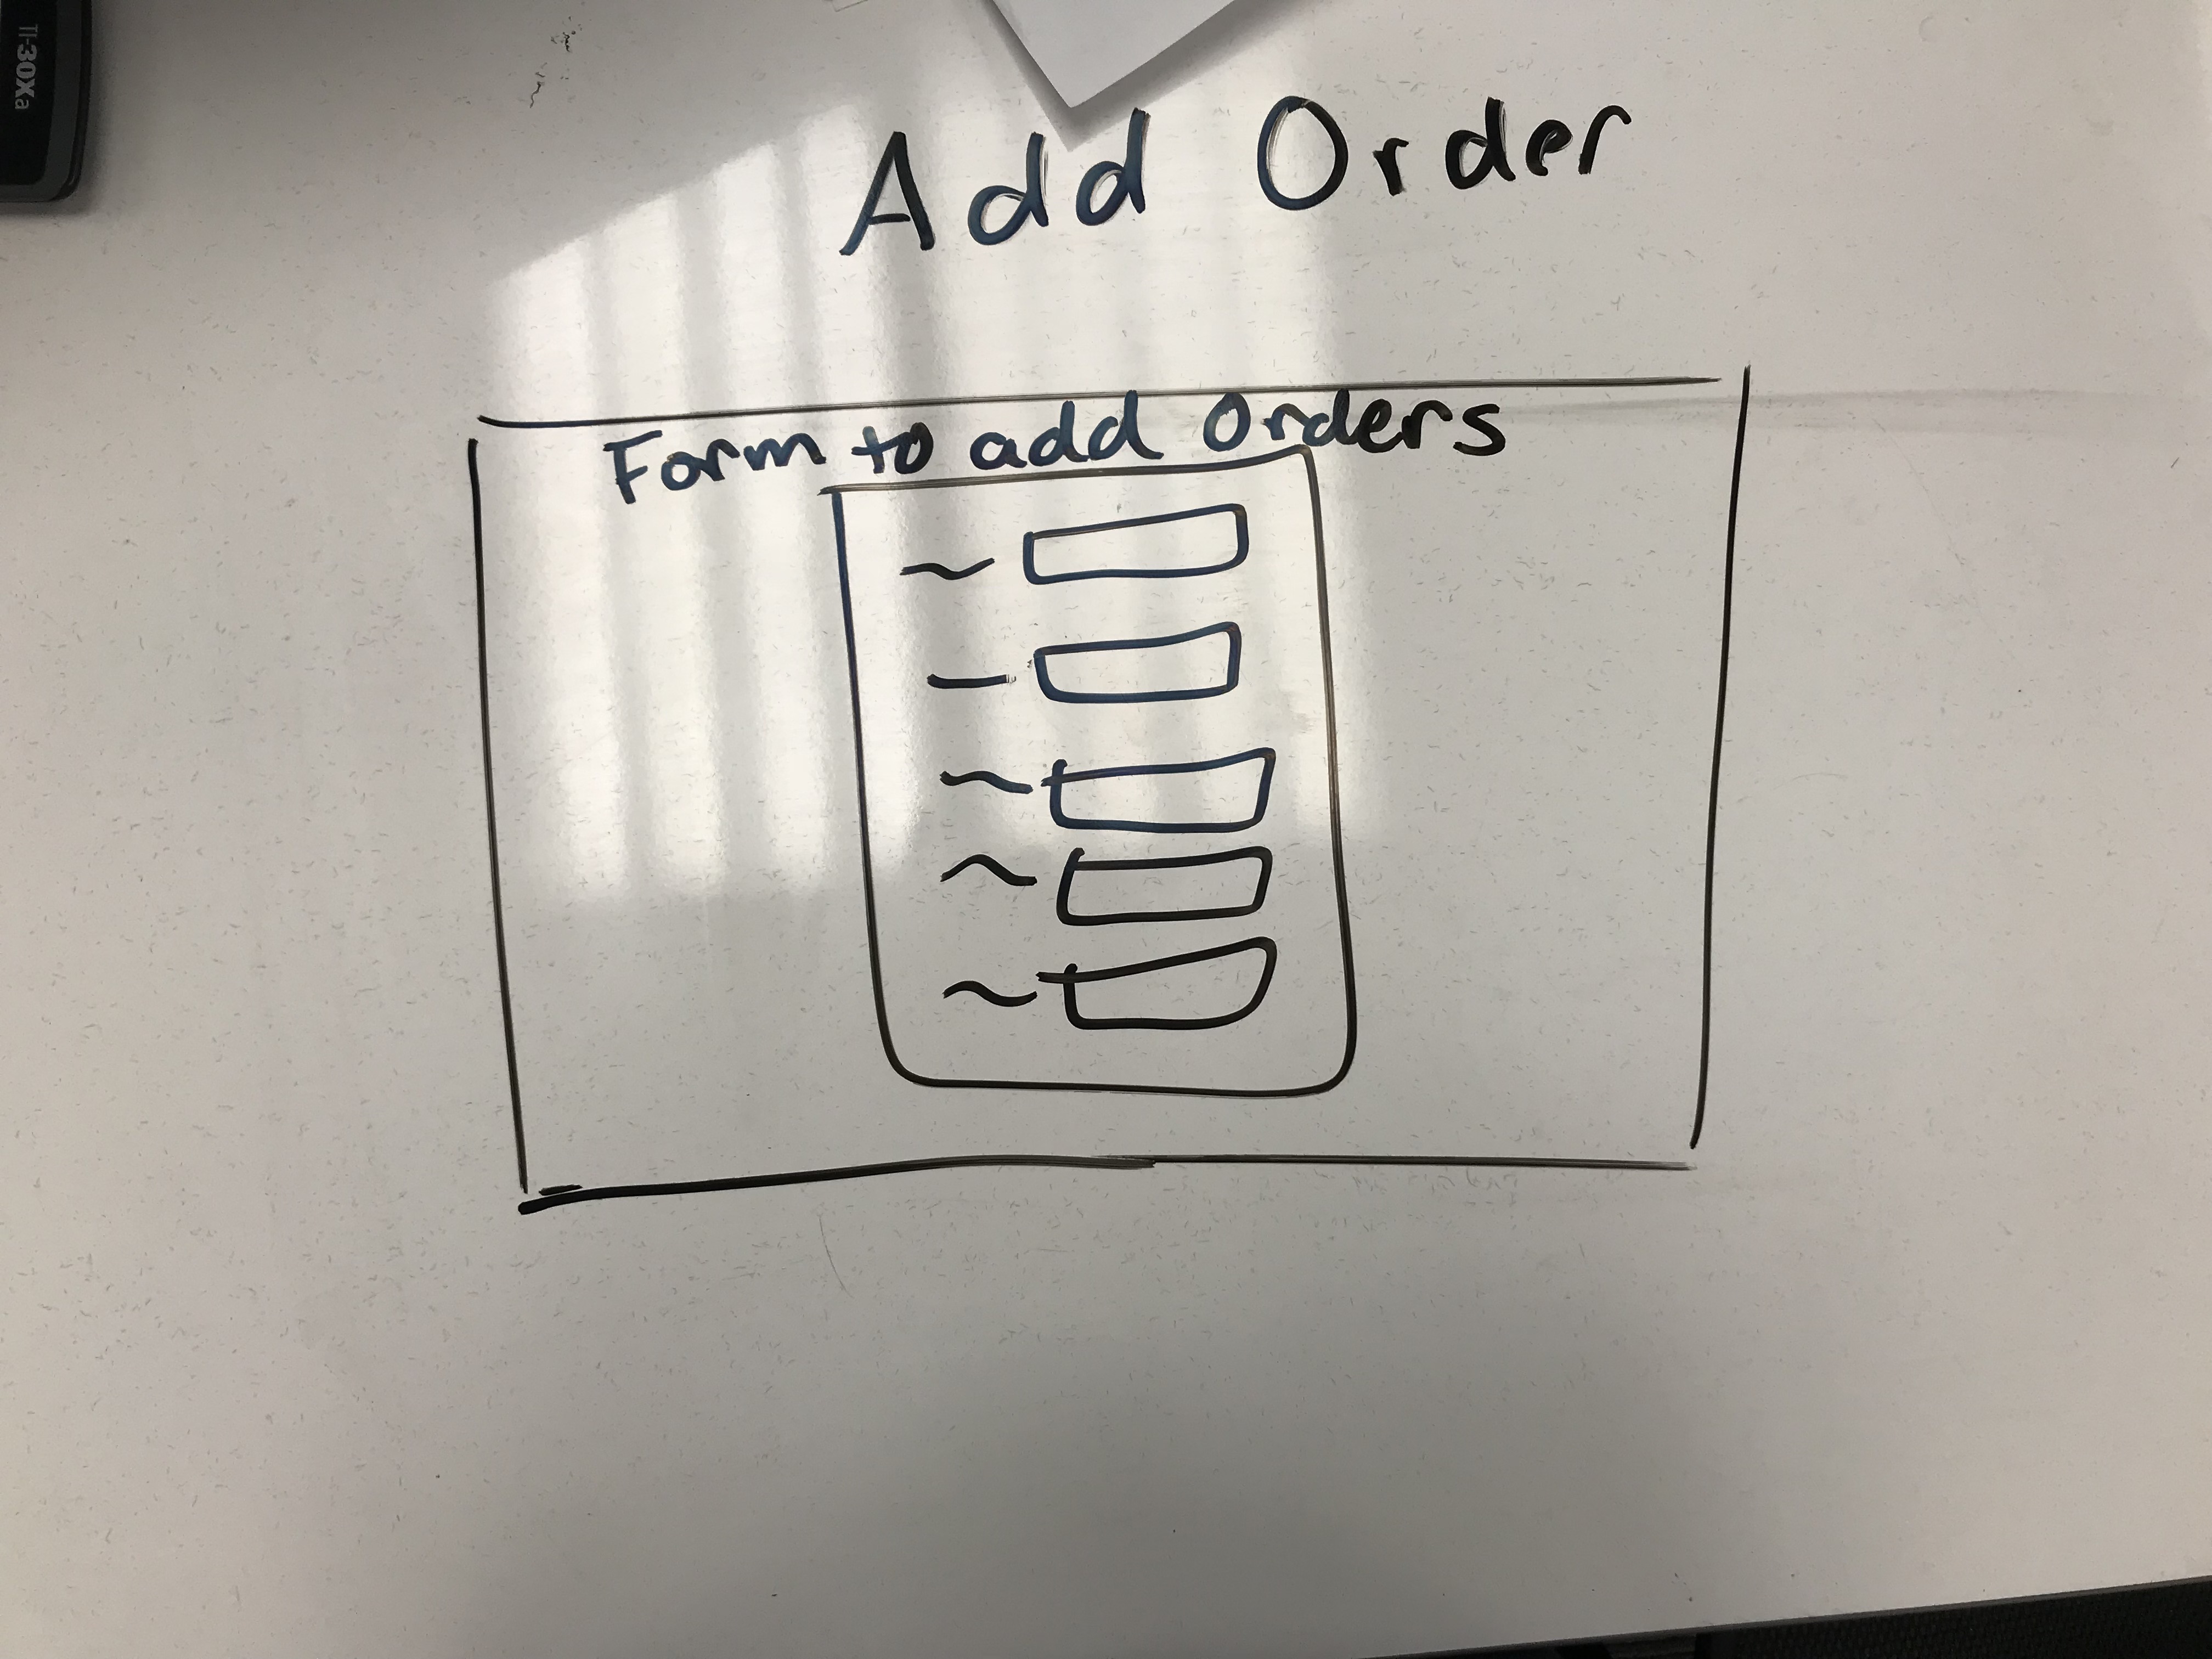 TI-30Xa
Add Order
Form to add Orders